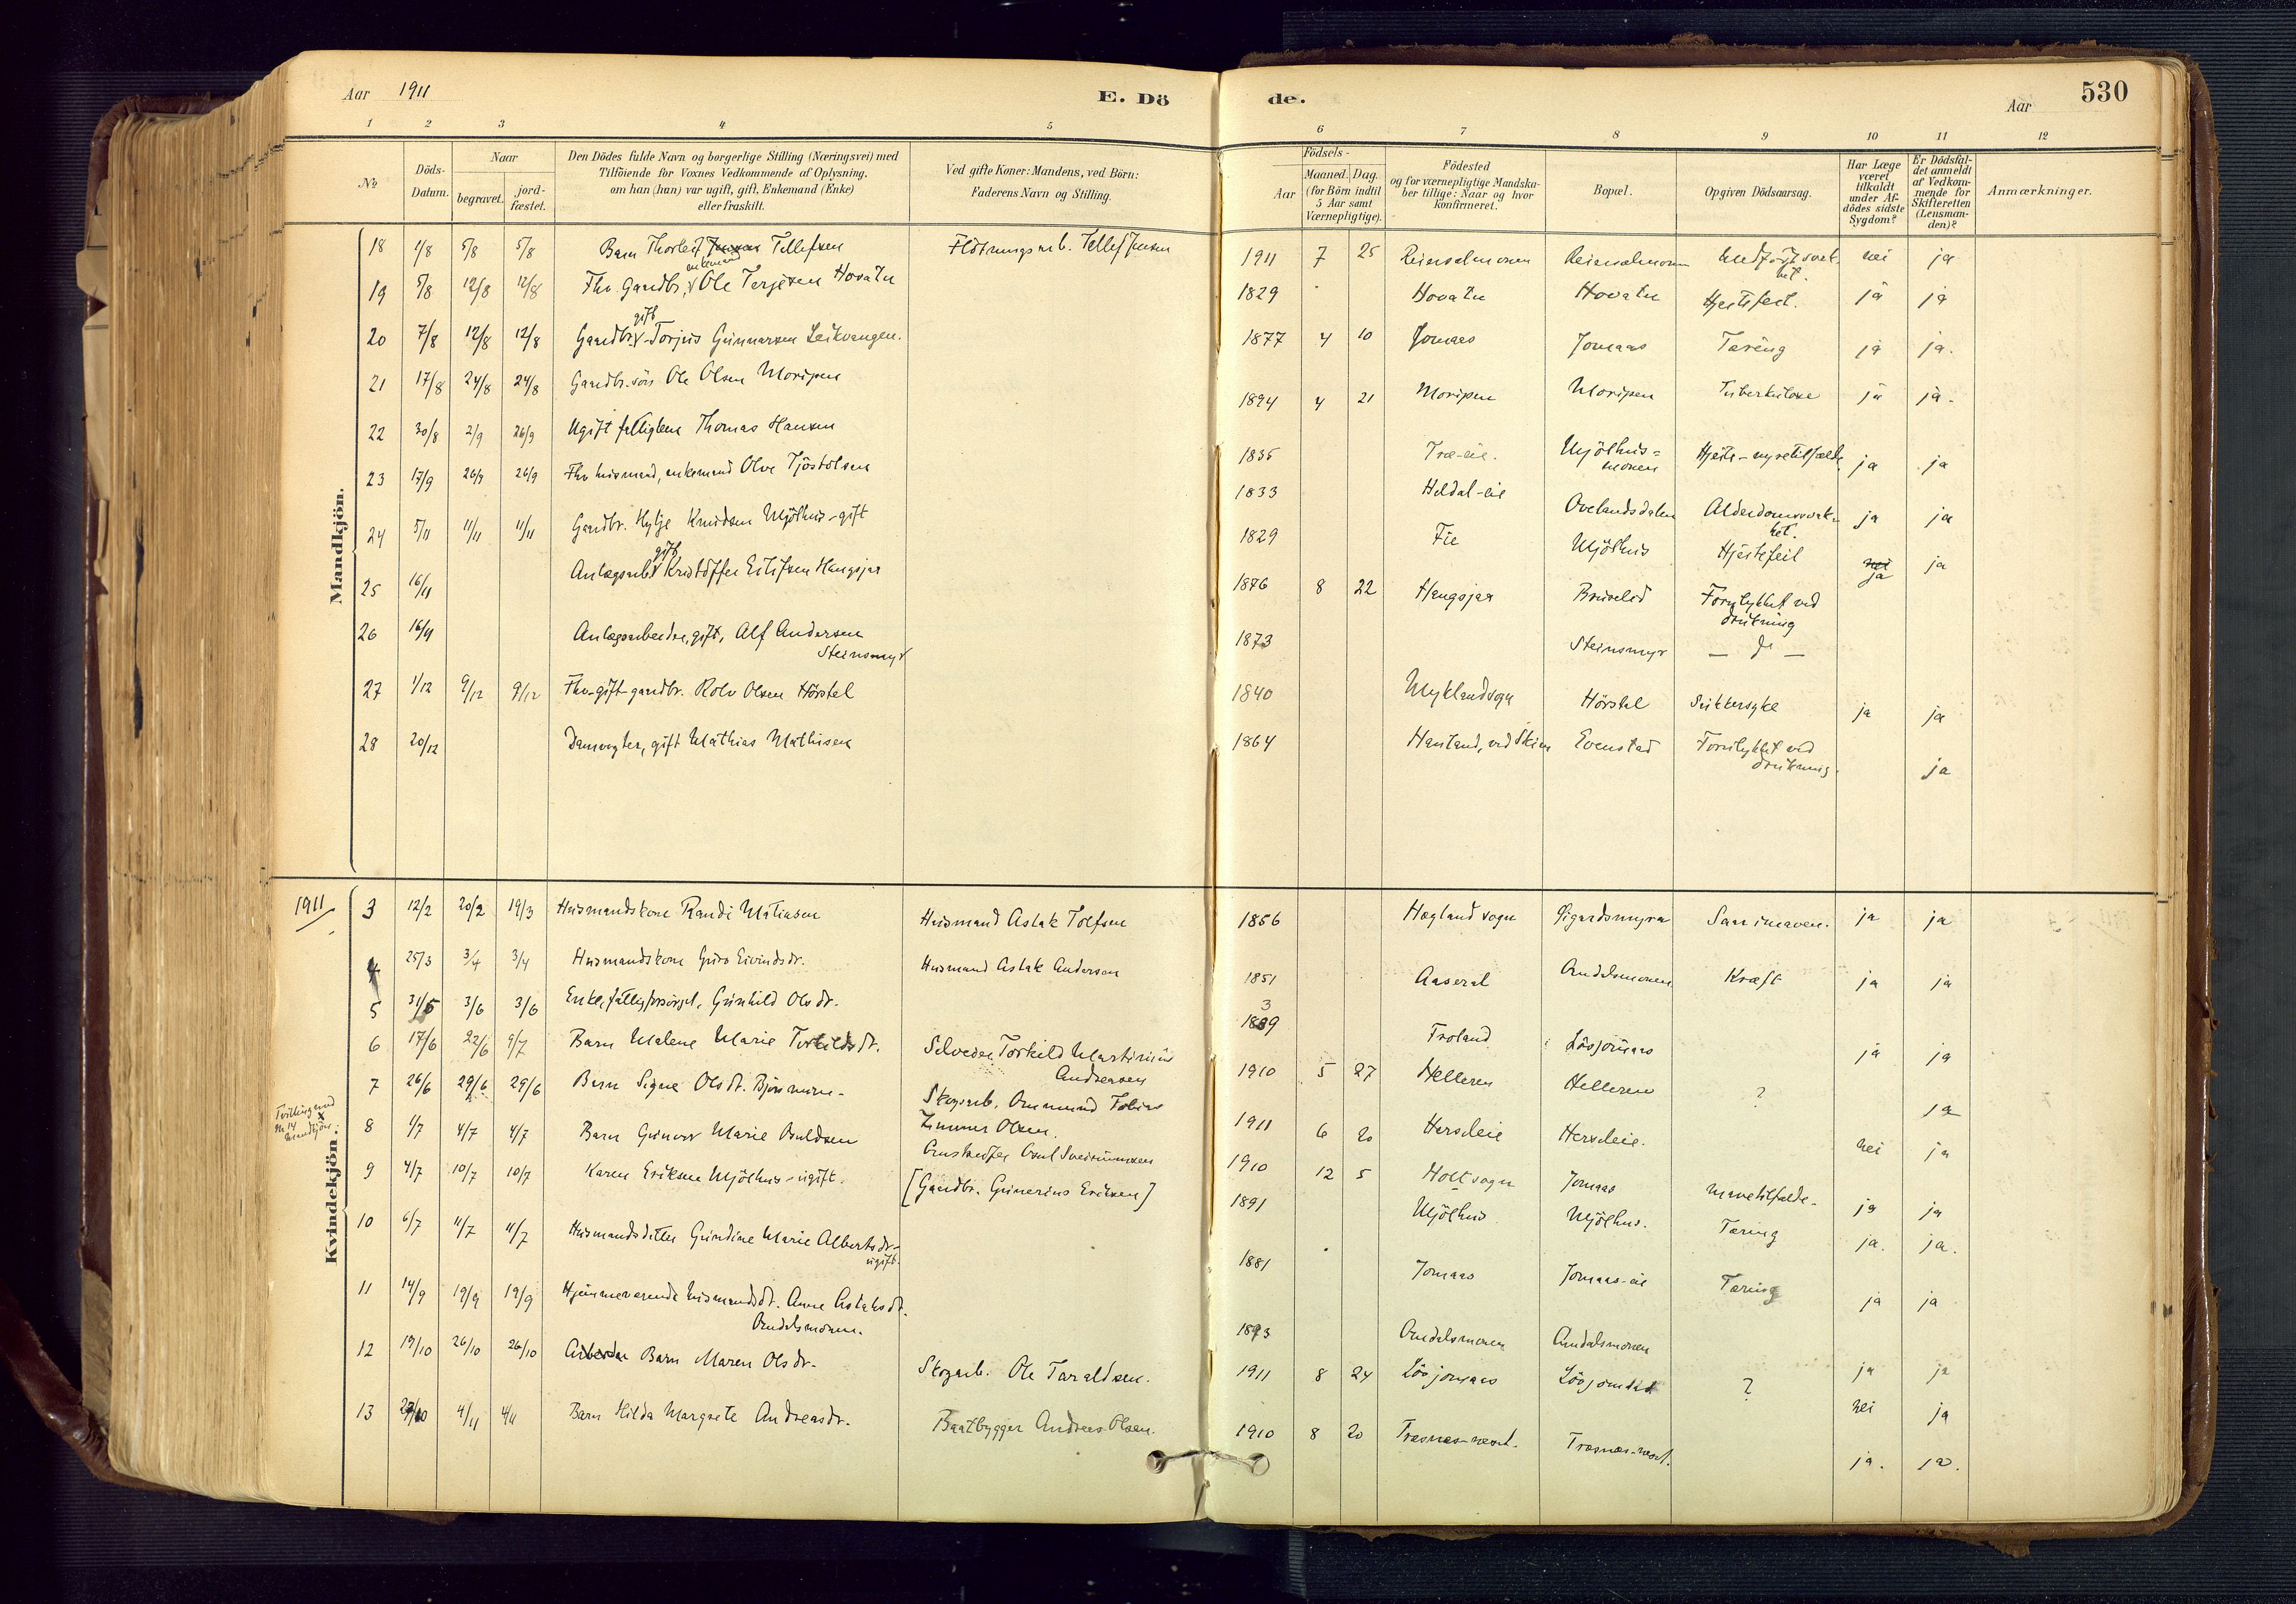 Aar 1911
E. Dö
de.
Aar
530
1 2 3 4 5 6 7 8 9 10 11 12
No
Döds-Datum.
Naar
begravet.
jord-fæstet.
Den Dödes fulde Navn og borgerlige Stilling (Næringsvei) med
Tilföiende for Voxnes Vedkommende af Oplysning,
om han (hun) var ugift, gift, Enkemand (Enke)
eller fraskilt.
Ved gifte Koner: Mandens, ved Börn:
Faderens Navn og Stilling.
Födsels-
Aar
Maaned. Dag.
(for Börn indtil
5 Aar samt
Værnepligtige).
Födested
og for værnepligtige Mandska-
ber tillige: Naar og hvor
konfirmeret.
Bopæl.
Opgiven Dödsaarsag.
Har Læge
været
tilkaldt
under Af-
dödes sidste
Sygdom?
Er Dödsfal-
det anmeldt
af Vedkom-
mende for
Skifteretten
(Lensman-
den)?
Anmærkninger.
Mandkjön.
18 1/8 5/8 5/8 Barn Thorleif Tellefsen Flötningsarb. Tellef Jensen 1911 7 25 Reinselmonen Reinselmonen Medfödt svak-het. nei ja
19 5/8 12/8 12/8 Fhv. Gaardbr., enkemand Ole Terjesen Hovatn 1829 Hovatn Hovatn Hjertefeil. ja ja
20 7/8 12/8 12/8 Gaardbr. gift Torjus Gunnarsen Leikvangen. 1877 4 10 Jomaas Jomaas Tæring ja ja.
21 17/8 24/8 24/8 Gaardbr. sön Ole Olsen Moripen 1894 4 21 Moripen Moripen Tuberkulose ja ja.
22 30/8 2/9 26/9 Ugift fattiglem Thomas Hansen 1835 Træ-eie. Mjölhus=monen Hjerte-nyretilfælde ja ja
23 17/9 26/9 26/9 Fhv. husmand, enkemand Olve Tjöstolsen 1833 Heldal-eie Ovelandsdalen Alderdomssvak-het. ja ja
24 5/11 11/11 11/11 Gaardbr. Kylje Knudsen Mjölhus-gift 1829 Fie Mjölhus Hjertefeil nei ja ja
25 16/11 Anlægsarb. gift Kristoffer Eilifsen Haugsjaa 1876 8 22 Haugsjaa Bruselid Forulykket ved drukning
26 16/11 Anlægsarbeider, gift, Alf Andersen Steinsmyr 1873 Steinsmyr — do —
27 1/12 9/12 9/12 Fhv. gift gaardbr. Rolv Olsen Hörstel 1840 Myklandsogn Hörstel Sukkersyke ja ja
28 20/12 Damvogter, gift Mathias Mathisen 1864 Hauland, ved Skien Evenstad Forulykket ved drukning. ja
Kvindekjön.
1911
3 12/2 20/2 19/3 Husmandskone Randi Matiasen Husmand Aslak Tolfsen 1856 Hægland sogn Sigurdsmyra Saar i maven. ja ja
4 25/3 3/4 3/4 Husmandskone Guro Eivindsdr. Husmand Aslak Andersen 1851 Aaseral Andalsmonen Kræft ja ja
5 31/5 3/6 3/6 Enke, fattigforsörget, Gunhild Olsdr. 1839 Froland Lövjomaas ja ja
6 17/6 22/6 9/7 Barn Malene Marie Torkildsdr. Selveier Torkild Martinius Andersen 1910 5 27 Helleren Helleren ? ja
7 26/6 29/6 29/6 Barn Signe Olsdt. Skogsarb. Ommund Tobias 1911 6 20 Hersleie Hersleie. nei ja
Tvilling med
Nr 14
Mandkjön.
8 1/7 4/7 4/7 Barn Gunvor Marie Osuldsen 1910 12 5 Holt sogn Jomaas mavetilfælde. ja ja
9 4/7 10/7 10/7 Karen Eriksen Mjölhus-ugift. [Gaardbr. Gunerius Eriksen] 1891 Mjölhus Mjölhus. Tæring ja. ja.
10 6/7 11/7 11/7 Husmandsdatter Gundine Marie Albertsdr. ugift. 1881 Jomaas Jomaas-eie Tæring ja ja
11 14/9 19/9 19/9 Hjemmeværende husmandsdt. Anne Aslaksdt. Aandalsmonen. 1893 Aandalsmonen Aandalsmonen ja ja
12 19/10 26/10 26/10 Barn Maren Olsdr. Skogarb. Ole Taraldsen. 1911 8 24 Lövjomaas Lövjomaas ? nei ja
13 27/10 4/11 4/11 Barn Hilda Margrete Andreasdr. Baatbygger Andreas Olsen. 1910 8 20 Træsnes-væst. Træsnes-væst. ja. ja.